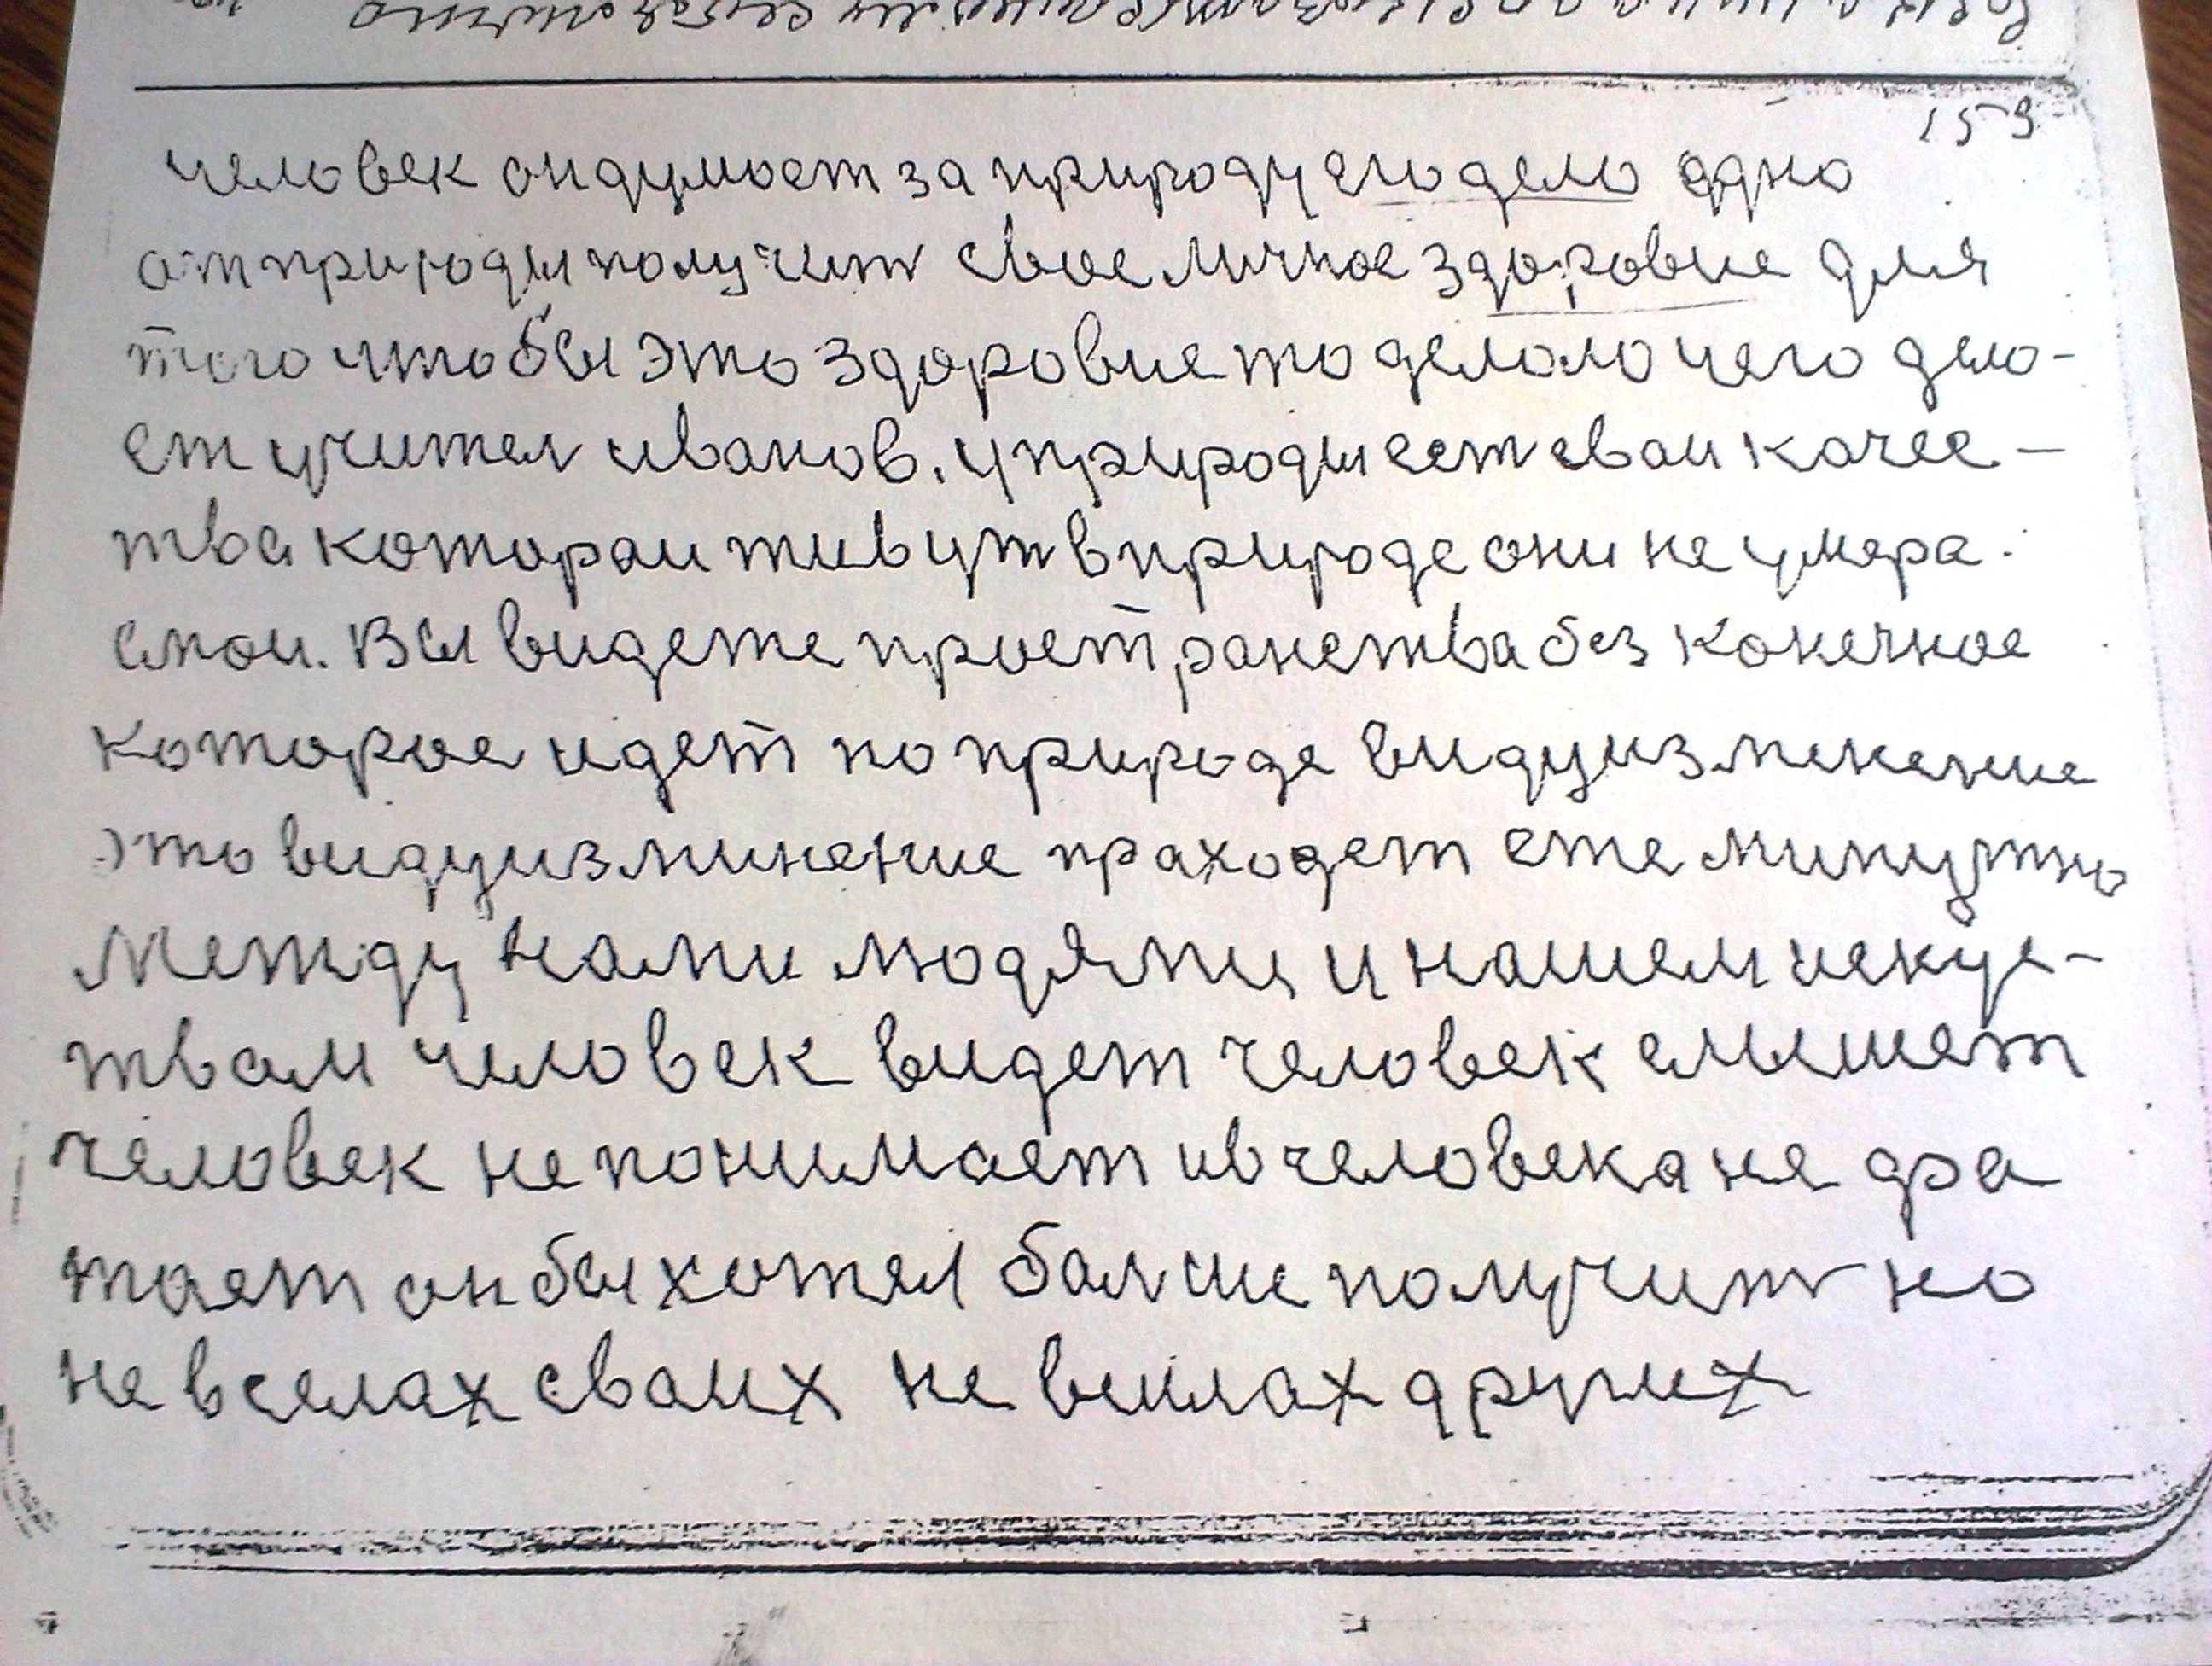 159
человек он думоет за природу его дело одно
от природы получит свое личное здоровие для
того что бы это здоровие то делало чего дело-
ет учител иванов. у природы ест сваи качес-
тва котораи живут в природе они не умера
емои. Вы видете прострнанства без конечное
которое идет по природе видуизменение
это видуизминение праходет еже минутно
между нами людями и нашем искус-
твам человек видет человек слышет
человек не понимает и в человека не хва
тает он бы хотел балше получит но
не в селах сваих не в силах других